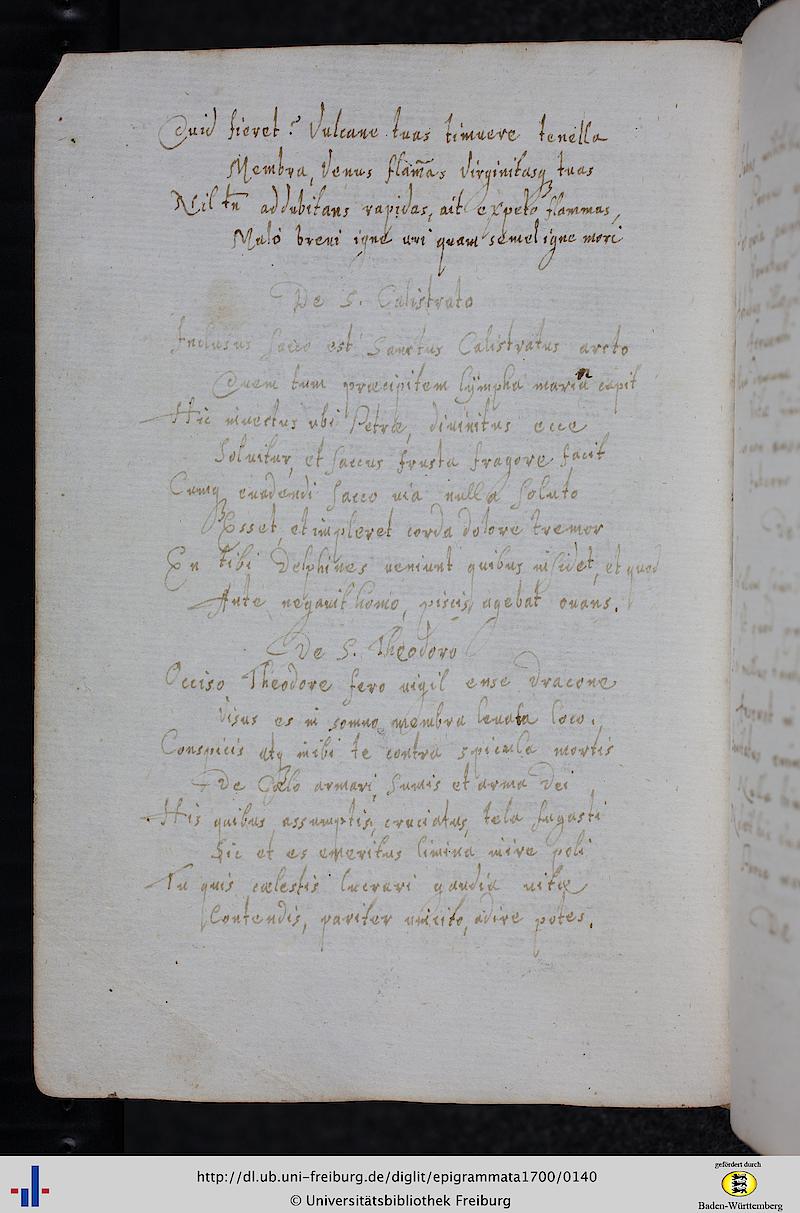 Quid fieret? Vulcane tuas timuere tenella
Membra, Venus flam̃as Virginitasq tuas
Nil tñ addubitans rapidas, ait expeto flammas,
Malo breui igne uri quam semel igne mori
De S. Calistrato
Inclusus sacco est Sanctus Calistratus arcto
Quem tum præcipitem lympha marina capit
Hic inuectus ubi Petræ, diuinitus ecce
Soluitur, et saccus frusta fragore facit
Cumq euadendi sacco uia nulla soluto
Esset, et impleret corda dolore tremor
En tibi Delphines ueniunt quibus insidet, et quod
Ante negauit homo, piscis agebat ouans.
De S. Theodoro
Occiso Theodore fero uigil ense Dracone
Visus es in somno membra leuata loco.
Conspicis atq inibi te contra spicula mortis
De Cælo armari, sumis et arma Dei
His quibus assumptis, cruciatus, tela fugasti
Sic et es emeritus limina mire poli
Tu quis cælestis lucrari gaudia uitæ
Contendis, pariter uincito, adire potes.
http://dl.ub.uni-freiburg.de/diglit/epigrammata1700/0140
© Universitätsbibliothek Freiburg
gefördert durch
Baden-Württemberg